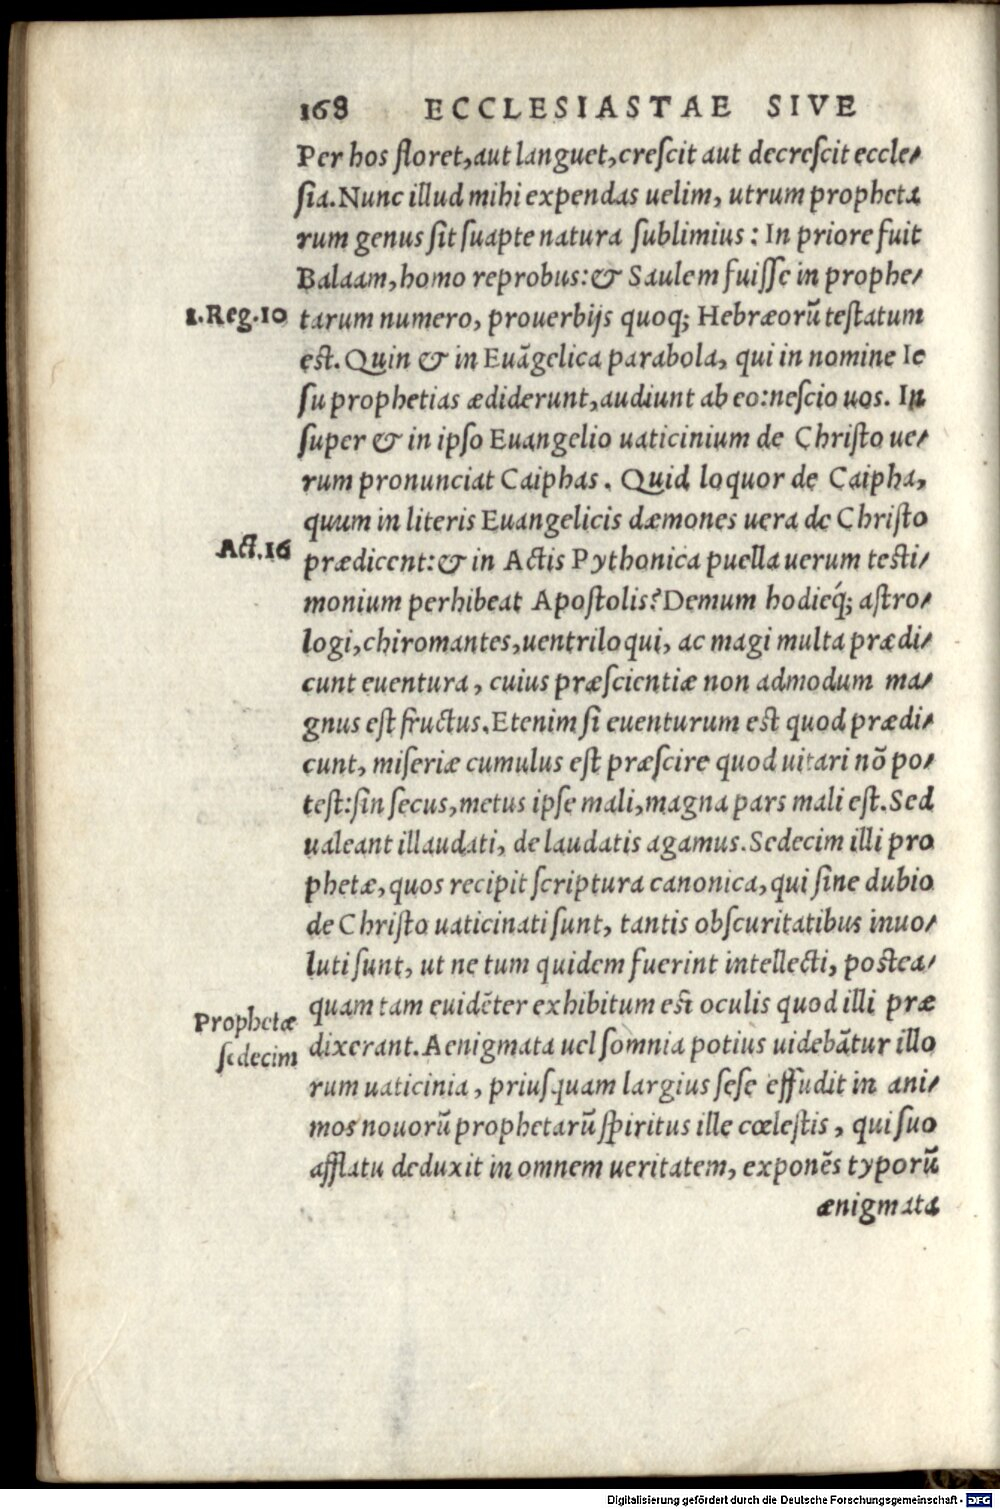 168 ECCLESIASTAE SIVE
Per hos floret, aut languet, crescit aut decrescit eccle/
sia. Nunc illud mihi expendas uelim, utrum propheta
rum genus sit suapte natura sublimius: In priore fuit
Balaam, homo reprobus: & Saulem fuisse in prophe/
1. Reg. 10
tarum numero, prouerbijs quoq; Hebræorũ testatum
est. Quin & in Euãgelica parabola, qui in nomine Ie
su prophetias ædiderunt, audiunt ab eo: nescio uos. In
super & in ipso Euangelio uaticinium de Christo ue/
rum pronunciat Caiphas. Quid loquor de Caipha,
quum in literis Euangelicis dæmones uera de Christo
Act. 16
prædicent: & in Actis Pythonica puella uerum testi/
monium perhibeat Apostolis? Demum hodieq́; astro/
logi, chiromantes, uentriloqui, ac magi multa prædi/
cunt euentura, cuius præscientiæ non admodum ma/
gnus est fructus. Etenim si euenturum est quod prædi/
cunt, miseriæ cumulus est præscire quod uitari nõ po/
test: sin secus, metus ipse mali, magna pars mali est. Sed
ualeant illaudati, de laudatis agamus. Sedecim illi pro
phetæ, quos recipit scriptura canonica, qui sine dubio
de Christo uaticinati sunt, tantis obscuritatibus inuo/
luti sunt, ut ne tum quidem fuerint intellecti, postea/
quam tam euidẽter exhibitum est oculis quod illi præ
Prophetæ
sedecim
dixerant. Aenigmata uel somnia potius uidebãtur illo
rum uaticinia, priusquam largius sese effudit in ani/
mos nouorũ prophetarũ spiritus ille cœlestis, qui suo
afflatu deduxit in omnem ueritatem, exponẽs typorũ
ænigmata
Digitalisierung gefördert durch die Deutsche Forschungsgemeinschaft - DFG